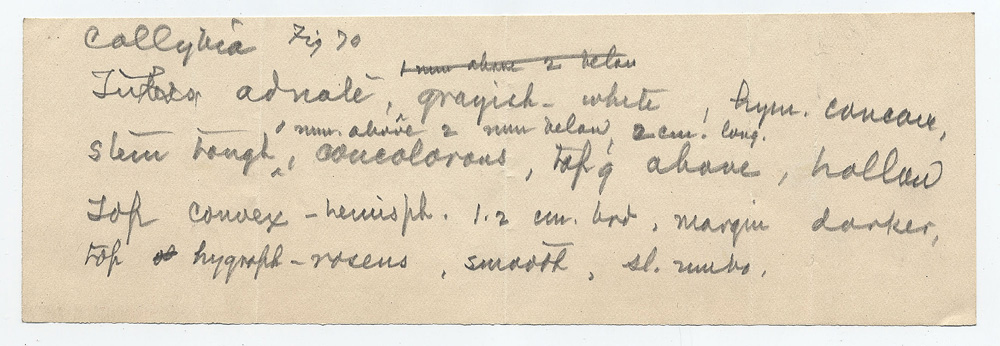 Collybia Fig 70
1 mm above 2 below
adnate, grayish-white, hym. concave,
1 mm. above 2 mm below, 2 cm. long.
stem tough, concolorous, top q above, hollow
Top convex-hemisph. 1.2 cm. brd, margin darker,
top hygroph-roseus, smooth, sl. umbo.